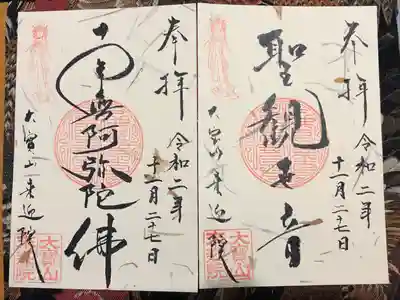 奉拝
令和二年
十一月二十七日
聖観世音
大寶山来迎院
大寶山
奉拝
令和二年
十一月二十七日
南無阿弥陀佛
大寶山来迎院
大寶山